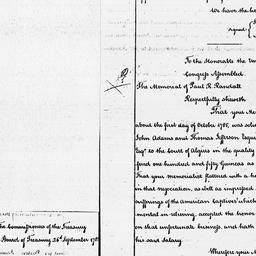 We have the ho
signed
To the Honorable the Un
Congress Assembled.
The Memorial of Paul R. Randall
Respectfully sheweth
That your Me
about the first day of October 1785, was soli
John Adams and Thomas Jefferson Esqui
Esqr to the Court of Algiers in the quality
fered one hundred and fifty Guineas as
That your memorialist flattered with a ho
in that negociation, as well as impressed
sufferings of the american captives which
mental in relieving, accepted the honor
on that unfortunate business, and hath
his said Salary.
Wherefore your M
The Commissioners of the Treasury
Board of Treasury 25th September 178